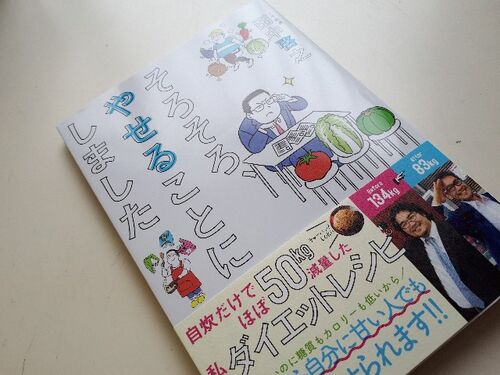 そろそろ、
やせることに
しました
before
134kg
after
83kg
自炊だけで
ほぼ50kg減量した
私
ダイエットレシピ
のに糖質もカロリーも低いから
自分に甘い人でも
られます!!